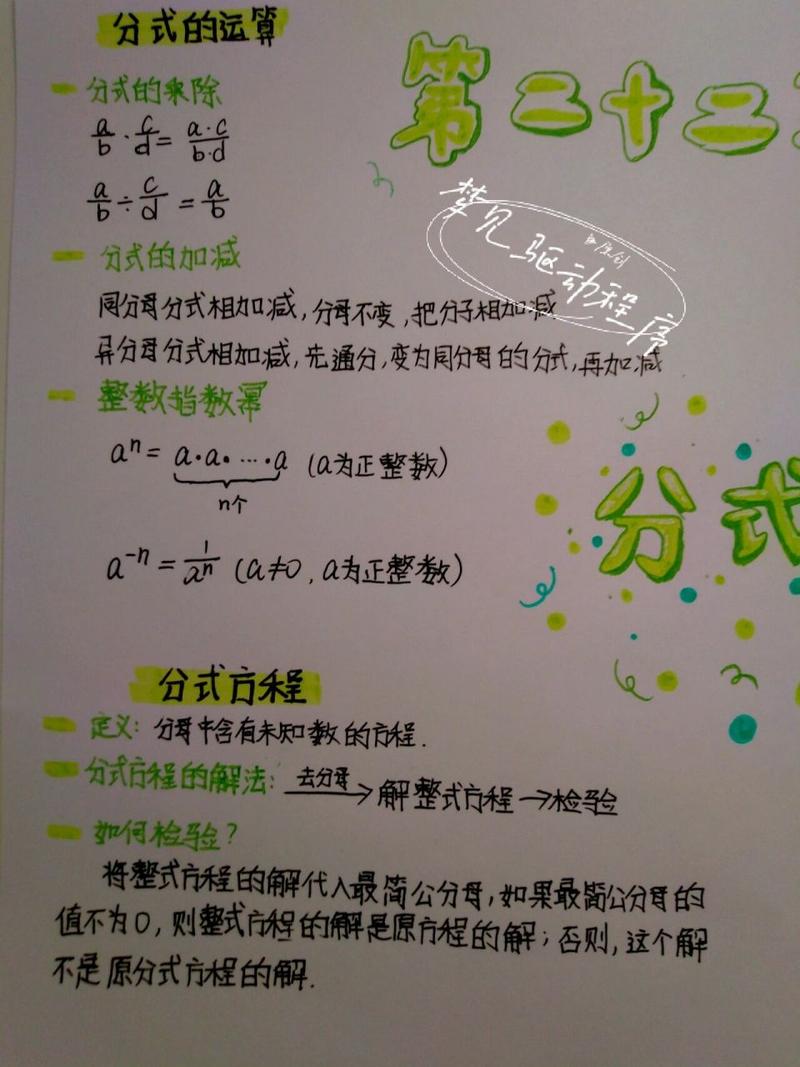 分式的运算
第二十二
分式的乘除
a/b · c/d = a·c/b·d
a/b ÷ c/d = a/b
梦见驱动程序
分式的加减
同分母分式相加减,分母不变,把分子相加减
异分母分式相加减,先通分,变为同分母的分式,再加减
整数指数幂
aⁿ = a·a·…·a (a为正整数)
n个
分式
a⁻ⁿ = 1/aⁿ (a≠0, a为正整数)
分式方程
定义: 分母中含有未知数的方程.
分式方程的解法: 去分母→解整式方程→检验
如何检验?
将整式方程的解代入最简公分母,如果最简公分母的
值不为0, 则整式方程的解是原方程的解; 否则, 这个解
不是原分式方程的解.